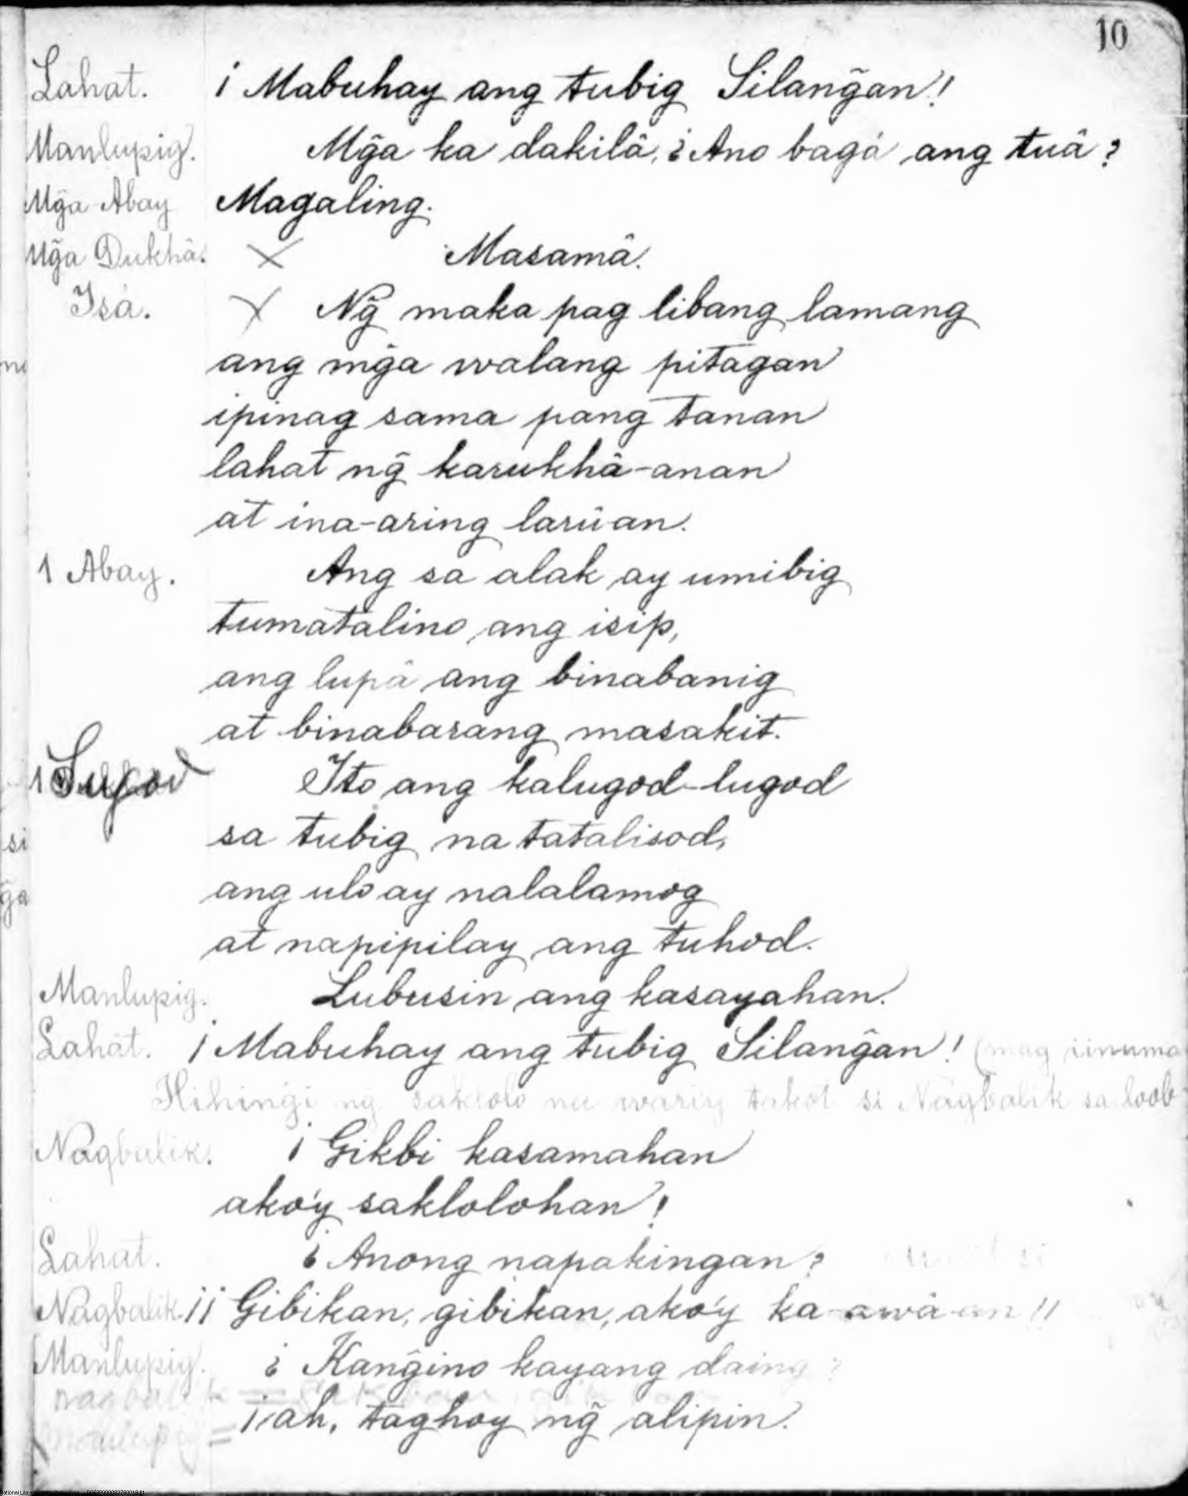 10
Lahat. ¡ Mabuhay ang tubig Silang̃an!
Manlupig. Mg̃a ka dakilâ, ¿Ano bagá ang tuâ?
Mg̃a Abay Magaling.
Mg̃a Dukhâ. Masamâ.
Isá. Ng̃ maka pag libang lamang
ang mg̃a walang pitagan
ipinag sama pang tanan
lahat ng̃ karukhâ-anan
at ina-aring larûan.
1 Abay. Ang sa alak ay umibig
tumatalino ang isip,
ang lupâ ang binabanig
at binabarang masakit.
1 Sugod Ito ang kalugod-lugod
sa tubig na tatalisod,
ang ulo ay nalalamog
at napipilay ang tuhod.
Manlupig. Lubusin ang kasayahan.
Lahat. ¡ Mabuhay ang tubig Silang̃an! (mag iinuma
Hihing̃i ng saklolo na wariy takot si Nagbalik sa loob
Nagbalik. ¡ Gikbi kasamahan
ako'y saklolohan!
Lahat. ¿ Anong napakingan?
Nagbalik. ¡¡ Gibikan, gibikan, ako'y ka-awâ-an!!
Manlupig. ¿ Kang̃ino kayang daing?
nagbalik =
¡ ah, taghoy ng̃ alipin.
Manlupig =